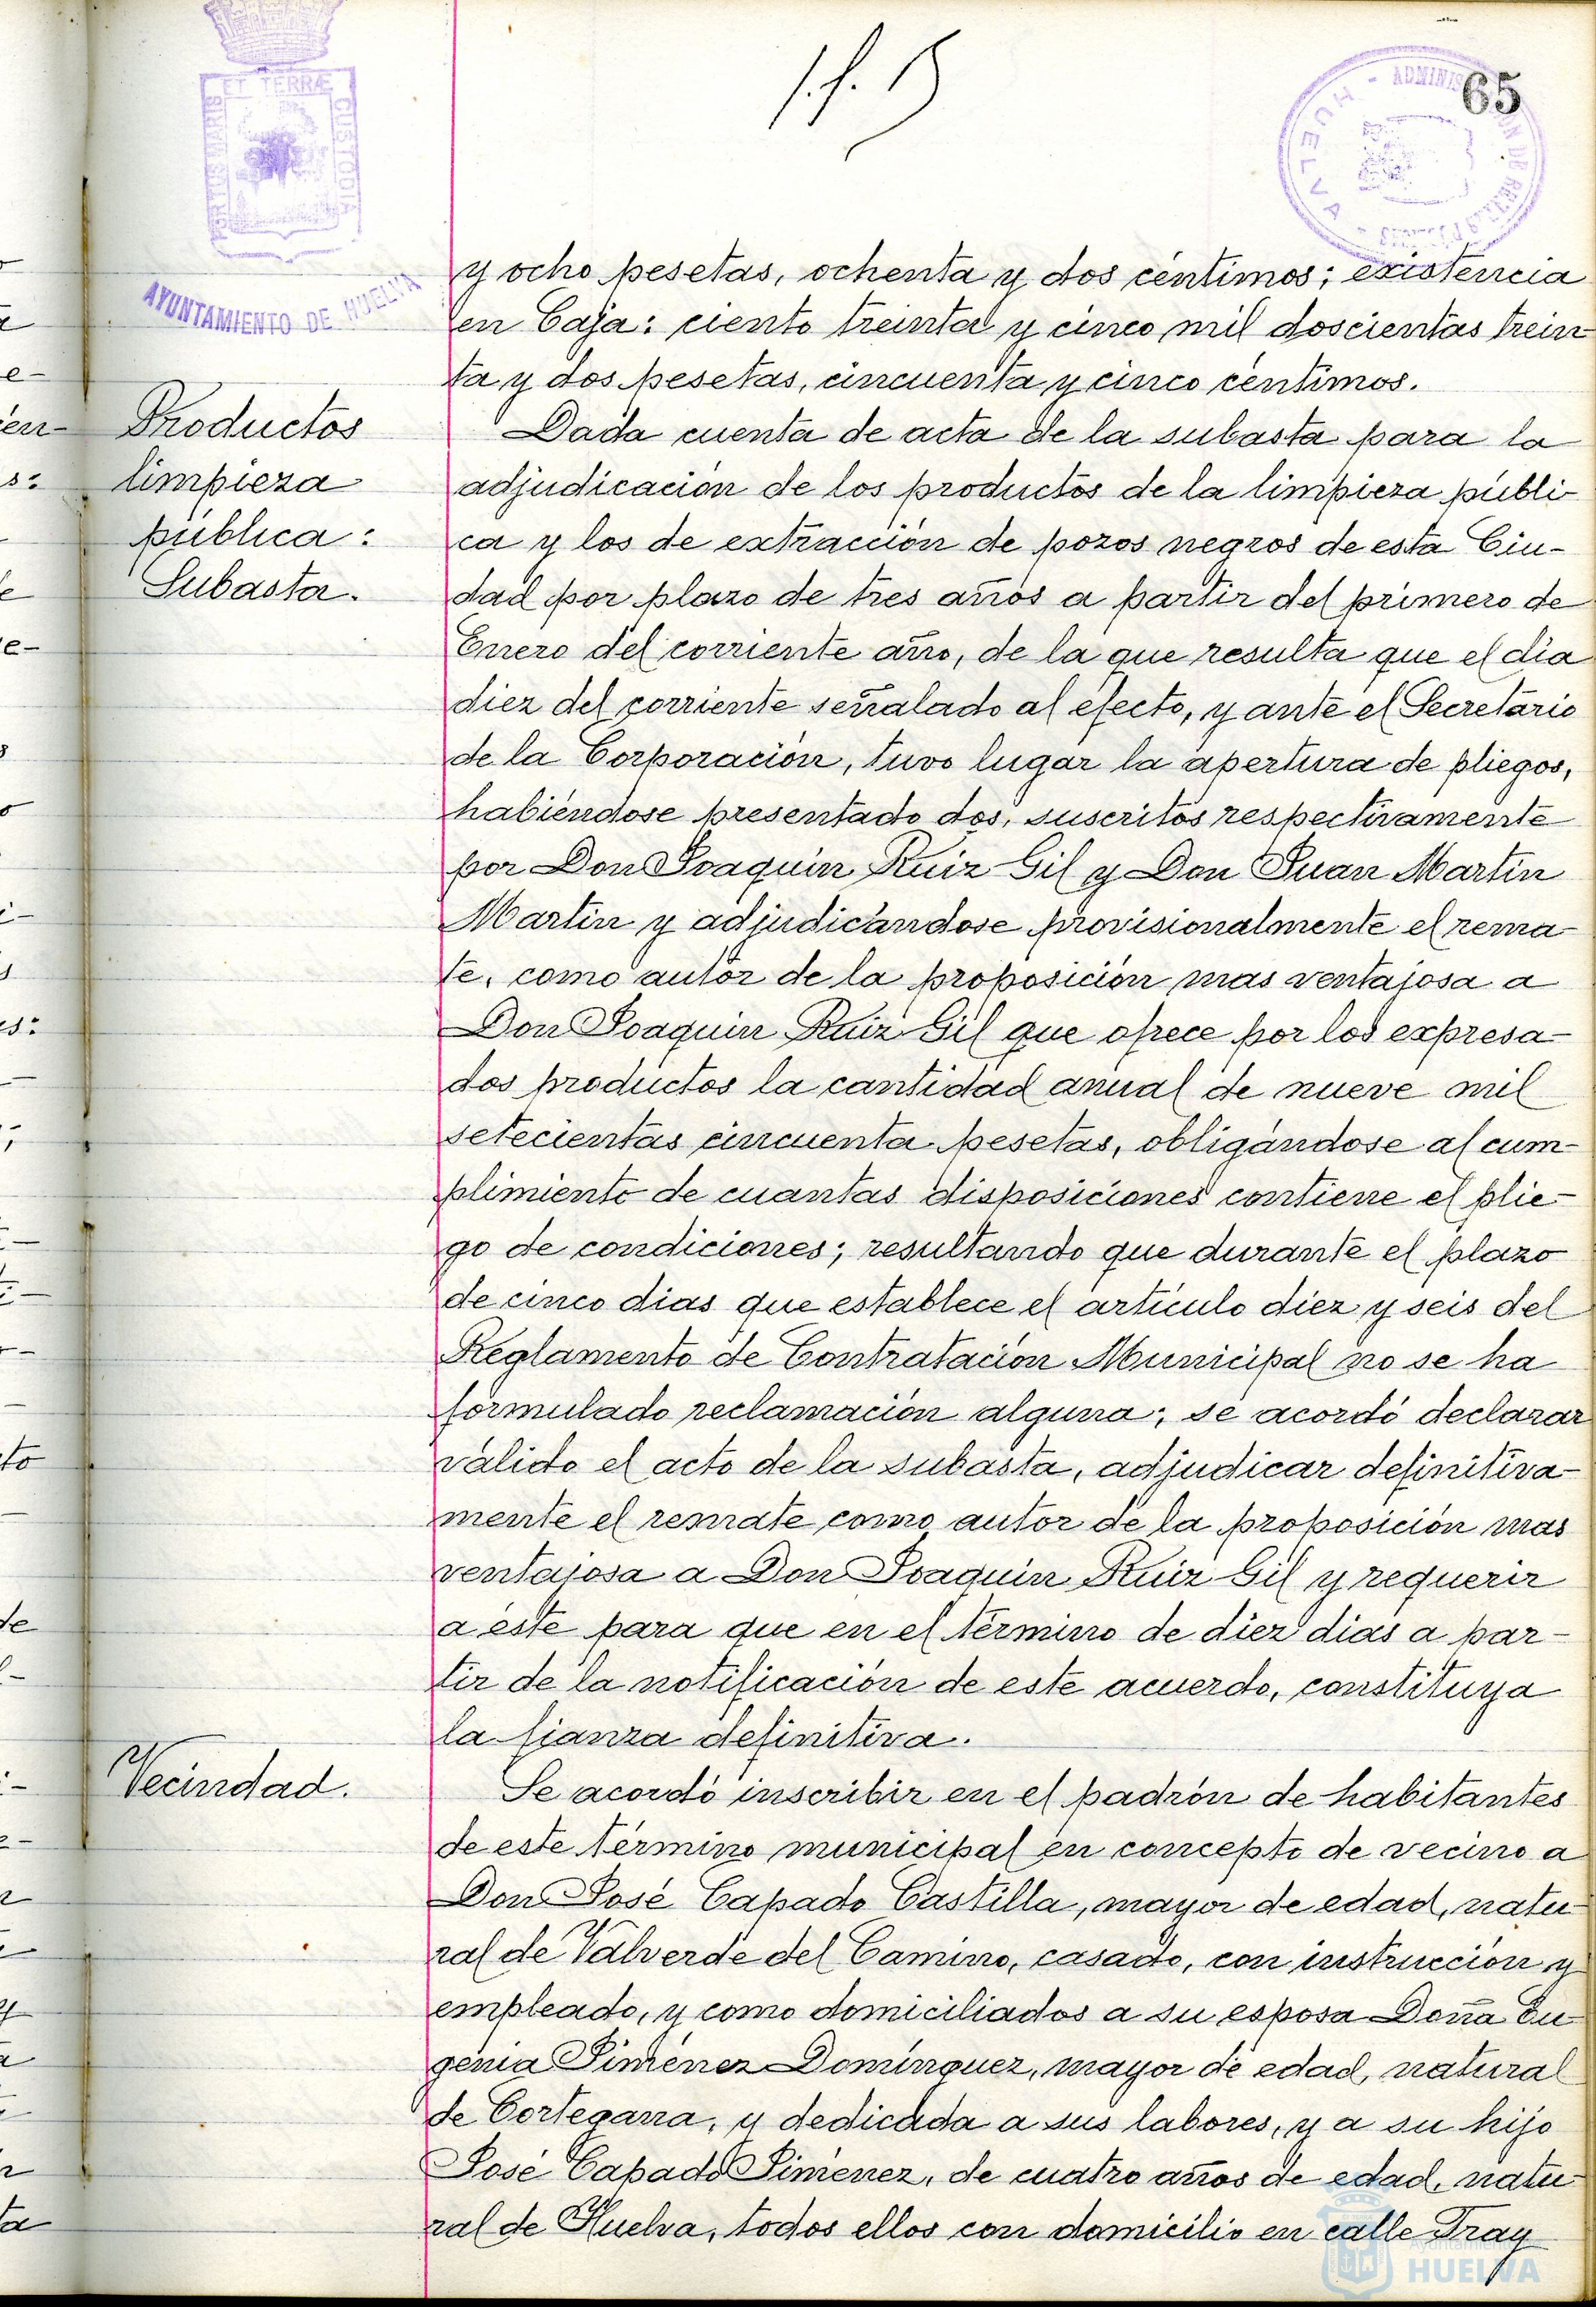 65
ET TERRÆ
PORTUS MARIS
CUSTODIA
HUELVA
AYUNTAMIENTO DE HUELVA
y ocho pesetas, ochenta y dos céntimos; existencia
en Caja: ciento treinta y cinco mil doscientas trein
ta y dos pesetas, cincuenta y cinco céntimos.
Productos
limpieza
pública:
Subasta.
Dada cuenta de acta de la subasta para la
adjudicación de los productos de la limpieza públi-
ca y los de extracción de pozos negros de esta Ciu-
dad por plazo de tres años a partir del primero de
Enero del corriente año, de la que resulta que el dia
diez del corriente señalado al efecto, y ante el Secretario
de la Corporación, tuvo lugar la apertura de pliegos,
habiéndose presentado dos, suscritos respectivamente
por Don Joaquin Ruiz Gil y Don Juan Martin
Martin y adjudicándose provisionalmente el rema-
te, como autor de la proposición mas ventajosa a
Don Joaquin Ruiz Gil que ofrece por los expresa-
dos productos la cantidad anual de nueve mil
setecientas cincuenta pesetas, obligándose al cum-
plimiento de cuantas disposiciones contiene el plie-
go de condiciones; resultando que durante el plazo
de cinco dias que establece el artículo diez y seis del
Reglamento de Contratación Municipal no se ha
formulado reclamación alguna; se acordó declarar
válido el acto de la subasta, adjudicar definitiva-
mente el remate como autor de la proposición mas
ventajosa a Don Joaquin Ruiz Gil y requerir
a éste para que en el término de diez dias a par-
tir de la notificación de este acuerdo, constituya
la fianza definitiva.
Vecindad.
Se acordó inscribir en el padrón de habitantes
de este término municipal en concepto de vecino a
Don José Capado Castilla, mayor de edad, natu-
ral de Valverde del Camino, casado, con instrucción y
empleado, y como domiciliados a su esposa Doña Eu-
genia Jiménez Domínguez, mayor de edad, natural
de Cortegana, y dedicada a sus labores, y a su hijo
José Capado Jiménez, de cuatro años de edad, natu-
ral de Huelva, todos ellos con domicilio en calle Fray
Ayuntamiento
HUELVA